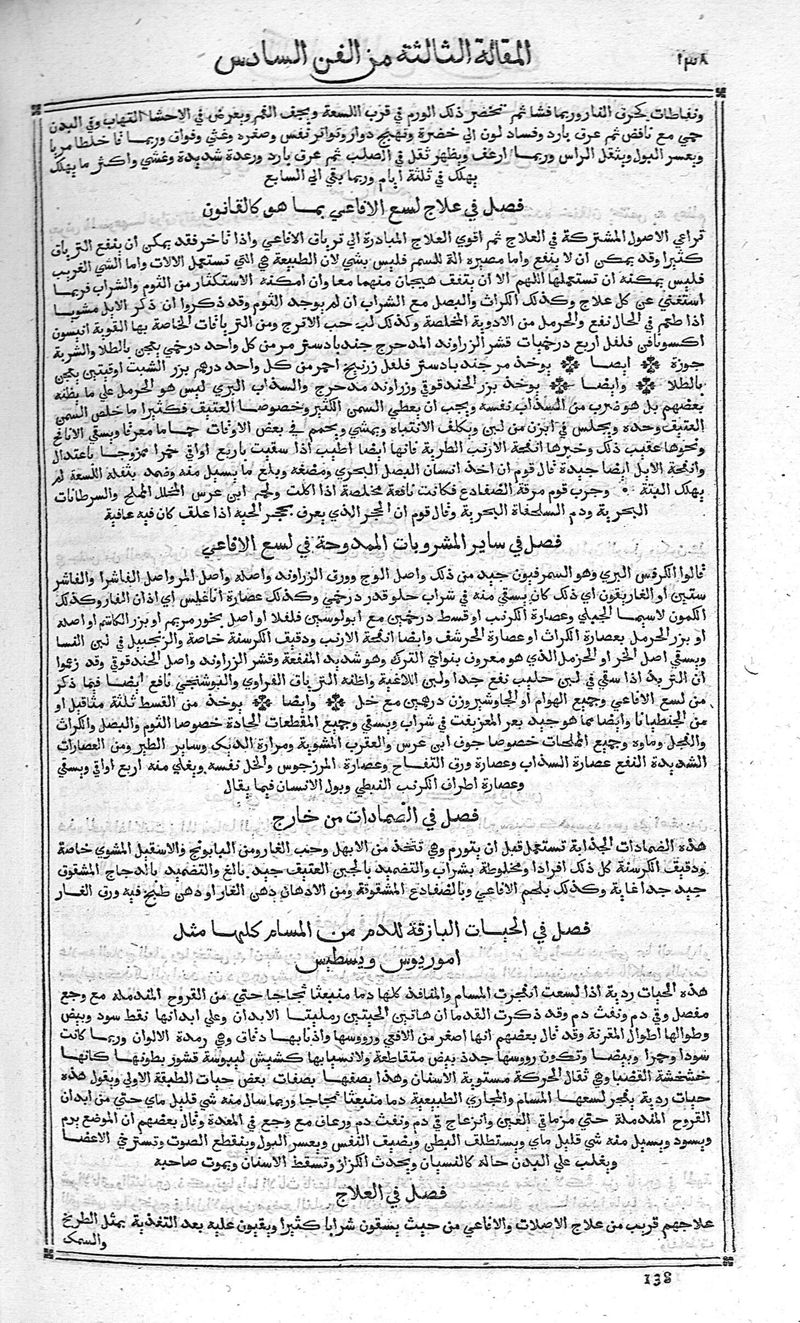 ١٣٨
المقالة الثالثة من الفن السادس
ونفاطات كحرق النار وربما فشا ثم تحضر ذلك الورم في قرب اللسعة ويجف الفم ويعرض في الاحشا التهاب وفي البدن
حمي مع نافض ثم عرق بارد وفساد لون الي خضرة وتهيج دوار وتواتر نفس وصغره وغثي وفواق وربما قا خلطا مريا
ويعسر البول ويثقل الراس وربما ارعف ويظهر ثقل في الصلب ثم عرق بارد ورعدة شديدة وغشي واكثر ما يهلك
يهلك في ثلثة ايام وربما بقي الي السابع
فصل في علاج لسع الافاعي بما هو كالقانون
تراعي الاصول المشتركة في العلاج ثم اقوي العلاج المبادرة الي ترياق الافاعي واذا تاخر فقد يمكن ان ينفع الترياق
كثيرا وقد يمكن ان لا ينفع واما مصيره الة للسم فليس بشي لان الطبيعة هي التي تستعمل الالات واما الشي الغريب
فليس يمكنه ان تستعملها اللهم الا ان يتفق هيجان منهما معا وان امكنه الاستكثار من الثوم والشراب فربما
استغني عن كل علاج وكذلك الكراث والبصل مع الشراب ان لم يوجد الثوم وقد ذكروا ان ذكر الايل مشويا
اذا طعم في الحال نفع والحرمل من الادوية المخلصة وكذلك لب حب الاترج ومن الترياقات الخاصة بها القوية انيسون
اكسونافن فلفل اربع درخميات قشر الزراوند المدحرج جندبادستر مر من كل واحد درخمي يعجن بالطلا والشربة
جوزة ايضا يوخذ مر جندبادستر فلفل زرنيخ احمر من كل واحد درهم بزر الشبت اوقيتين يعجن
بالطلا وايضا يوخذ بزر الحندقوقي وزراوند مدحرج والسذاب البري ليس هو الحرمل علي ما يظنه
بعضهم بل هو ضرب من السذاب نفسه ويجب ان يعطي السمن الكثير وخصوصا العتيق فكثيرا ما خلص السمن
العتيق وحده ويجلس في ابزن من لبن ويكلف الانتباه ويمشي ويحمم في بعض الاوقات حماما معرقا ويسقي الانافح
ونحوها عقيب ذلك وخيرها انفحة الارنب الطرية فانها ايضا اطيب اذا سقيت باربع اواقي خمرا ممزوجا باعتدال
وانفحة الايل ايضا جيدة قال قوم ان اخذ انسان البصل البحري ومضغه وبلع ما يسيل منه وضمد بثفله اللسعة لم
يهلك البتة وجرب قوم مرقة الضفادع فكانت نافعة مخلصة اذا اكلت ولحم ابن عرس المخلل المملح والسرطانات
البحرية ودم السلحفاة البحرية وقال قوم ان الحجر الذي يعرف بحجر الحية اذا علف كان فيه عافية
فصل في ساير المشروبات الممدوحة في لسع الافاعي
قالوا الكرفس البري وهو السمرفيون جيد من ذلك واصل الوج وورق الزراوند واصله واصل المر واصل الفاشرا والفاشر
ستين او الغاريقون اي ذلك كان يسقي منه في شراب حلو قدر درخمي وكذلك عصارة اناغلس اي اذان الفار وكذلك
الكمون لاسيما الجبلي وعصارة الكرنب او قسط درخمين مع ابولوسين فلفلا او اصل بخور مريم او بزر الكاشم او اصله
او بزر الحرمل بعصارة الكراث او عصارة الحرشف وايضا انفحة الارنب ودقيق الكرسنة خاصة والزنجبيل في لبن النسا
ويسقي اصل الخر او الحزمل الذي هو معروف بنواي الترك وهو شديد المنفعة وقشر الزراوند واصل الحندقوقي وقد زعموا
ان التربد اذا سقي في لبن حليب نفع جدا ولبن اللاغية واظنه الترياق الفراوي والبوشنجي نافع ايضا فيما ذكر
من لسع الافاعي وجميع الهوام او الجاوشير وزن درهمين مع خل وايضا يوخذ من القسط ثلثة مثاقيل او
من الجنطيانا وايضا مما هو جيد بعر المعز يفت في شراب ويسقي وجميع المقطعات الحادة خصوصا الثوم والبصل والكراث
والفجل وماوه وجميع المملحات خصوصا جوف ابن عرس والعقرب المشوية ومرارة الديك وساير الطير ومن العصارات
الشديدة النفع عصارة السذاب وعصارة ورق التفاح وعصارة المرزجوس والخل نفسه ويغلي منه اربع اواقي ويسقي
وعصارة اطراف الكرنب النبطي وبول الانسان فيما يقال
فصل في الضمادات من خارج
هذه الضمادات الجذابة تستعمل قبل ان يتورم وهي تتخذ من الابهل وحب الغار ومن البابونج والاسقيل المشوي خاصة
ودقيق الكرسنة كل ذلك افرادا ومخلوطة بشراب والتضميد بالجبن العتيق جيد بالغ والتضميد بالدجاج المشقوق
جيد جدا غاية وكذلك بلحم الافاعي وبالضفادع المشقوقة ومن الادهان دهن الغار او دهن طبخ فيه ورق الغار
فصل في الحيات البازقة للدم من المسام كلها مثل
اموريوس ويسطيس
هذه الحيات ردية اذا لسعت انفجرت المسام والمنافذ كلها دما منبعثا ثجاجا حتي من القروح المندملة مع وجع
مفصل وقي دم ونفث دم وقد ذكرت القدما ان هاتين الحيتين رمليتا الابدان وعلي ابدانها نقط سود وبيض
وطوالها اطوال المقرنة وقد قال بعضهم انها اصغر من الافعي ورووسها واذنابها دقاق وهي رمدة الالوان وربما كانت
سودا وحمرا وبيضا وتكون رووسها جدد بيض متقاطعة ولانسيابها كشيش ليبوسة قشور بطونها كانها
خشخشة القضبا وهي ثقال الحركة مستوية الاسنان وهذا بصفها بصفات بعض حيات الطبقة الاولي ويقول هذه
حيات ردية ينفجر لسعها المسام والمجاري الطبيعية دما منبعثا ثجاجا وربما سال منه شي قليل ماي حتي من ابدان
القروح المندملة حتي من ماقي العين وانزعاج في دم ونفث دم ورعاف مع وجع في المعدة وقال بعضهم ان الموضع يرم
ويسود ويسيل منه شي قليل ماي ويستطلق البطن ويضيق النفس ويعسر البول وينقطع الصوت وتسترخي الاعضا
ويغلب علي البدن حالة كالنسيان ويحدث الكزاز وتسقط الاسنان ويموت صاحبه
فصل في العلاج
علاجهم قريب من علاج الاصلات والافاعي من حيث يسقون شرابا كثيرا ويقيون عليه بعد التغذية بمثل الطريخ
والسمك
138